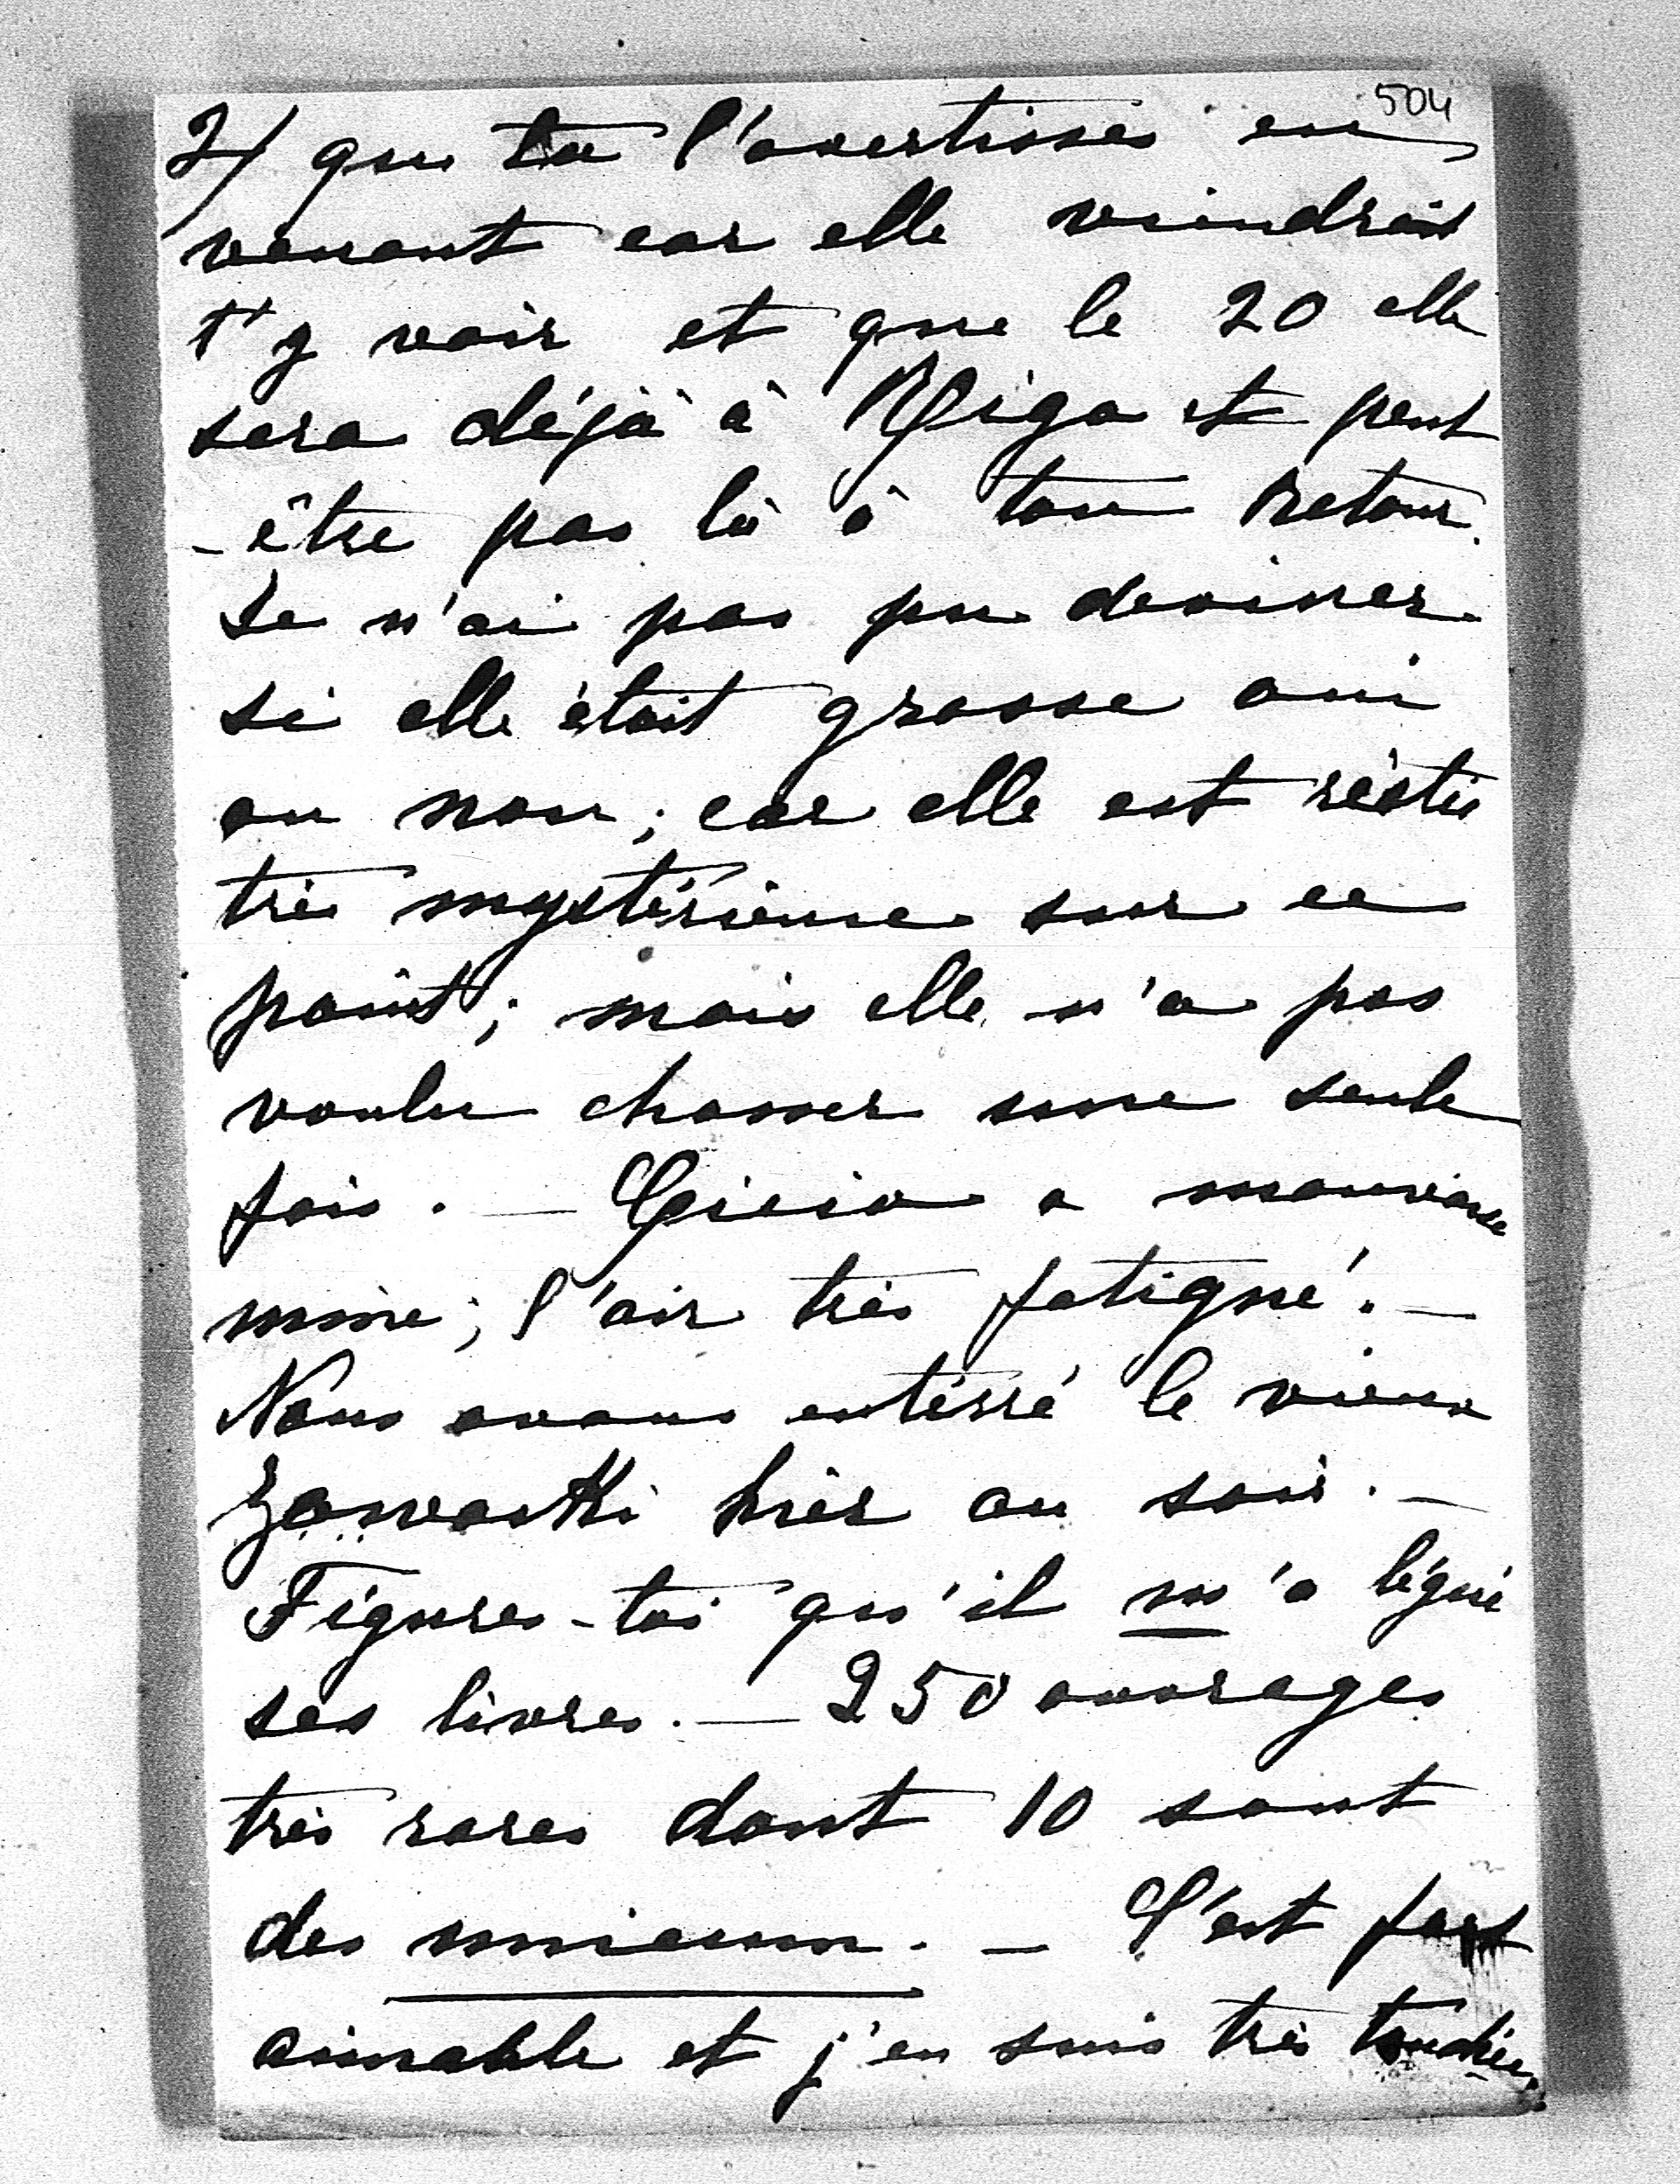 504
2/ que tu l'avertisses en
venant car elle viendrait
t'y voir et que le 20 elle
sera déjà à Riga et peut
-être pas là à ton retour.
Je n'ai pas pu deviner
si elle était grosse oui
ou non; car elle est réstée
très mystérieuse sur ce
point; mais elle n'a pas
voulu chasser une seule
fois. — a mauvaise
mine; l'air très fatigué. —
Nous avons entérré le vieux
Zawadzki hier au soir. —
Figures-toi qu'il m'a légué
ses livres. — 250 ouvrages
très rares dont 10 sont
des . — C'est fort
aimable et j'en suis très touchée.